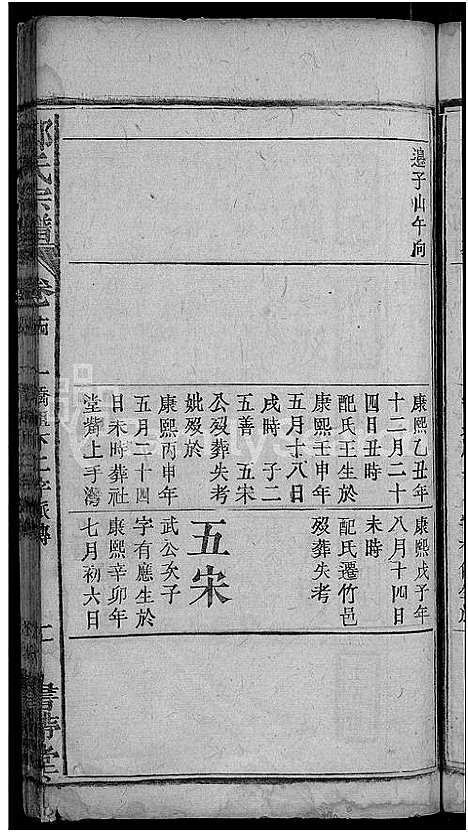 邉子山午向
康熙乙丑年
十二月二十
四日丑時
配氏王生於
康熙壬申年
五月十八日
戌時 子二
五善 五宋
公歿葬失考
妣歿於
康熙丙申年
五月二十四
日未時葬社
堂嘴上手灣
康熙戊子年
八月十四日
未時
配氏遷竹邑
歿葬失考
五宋
武公次子
字有應生於
康熙辛卯年
七月初六日
氏宗譜
卷
書帶堂